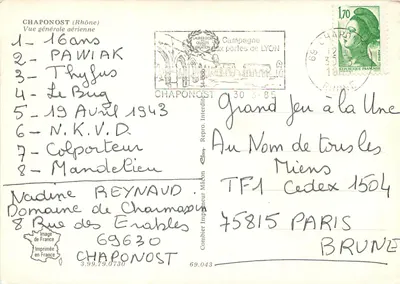 CHAPONOST (Rhône)
Vue générale aérienne
1- 16 ans
2- PAWIAK
3- Thyfus
4- Le Bug
5- 19 Avril 1943
6- N.K.V.D.
7- Colporteur
8- Mandelieu
Nadine REYNAUD.
Domaine de Charmassin
8 Rue des Erables
69630
CHAPONOST
Image
de France
Imprimée
en France
3.99.79.0730
69.043
Combier Imprimeur Mâcon
Campagne
aux portes de LYON
CHAPONOST
1,70
Grand Jeu à la Une
Au Nom de tous les
Miens
TF1 Cedex 1504
75815 PARIS
BRUNE